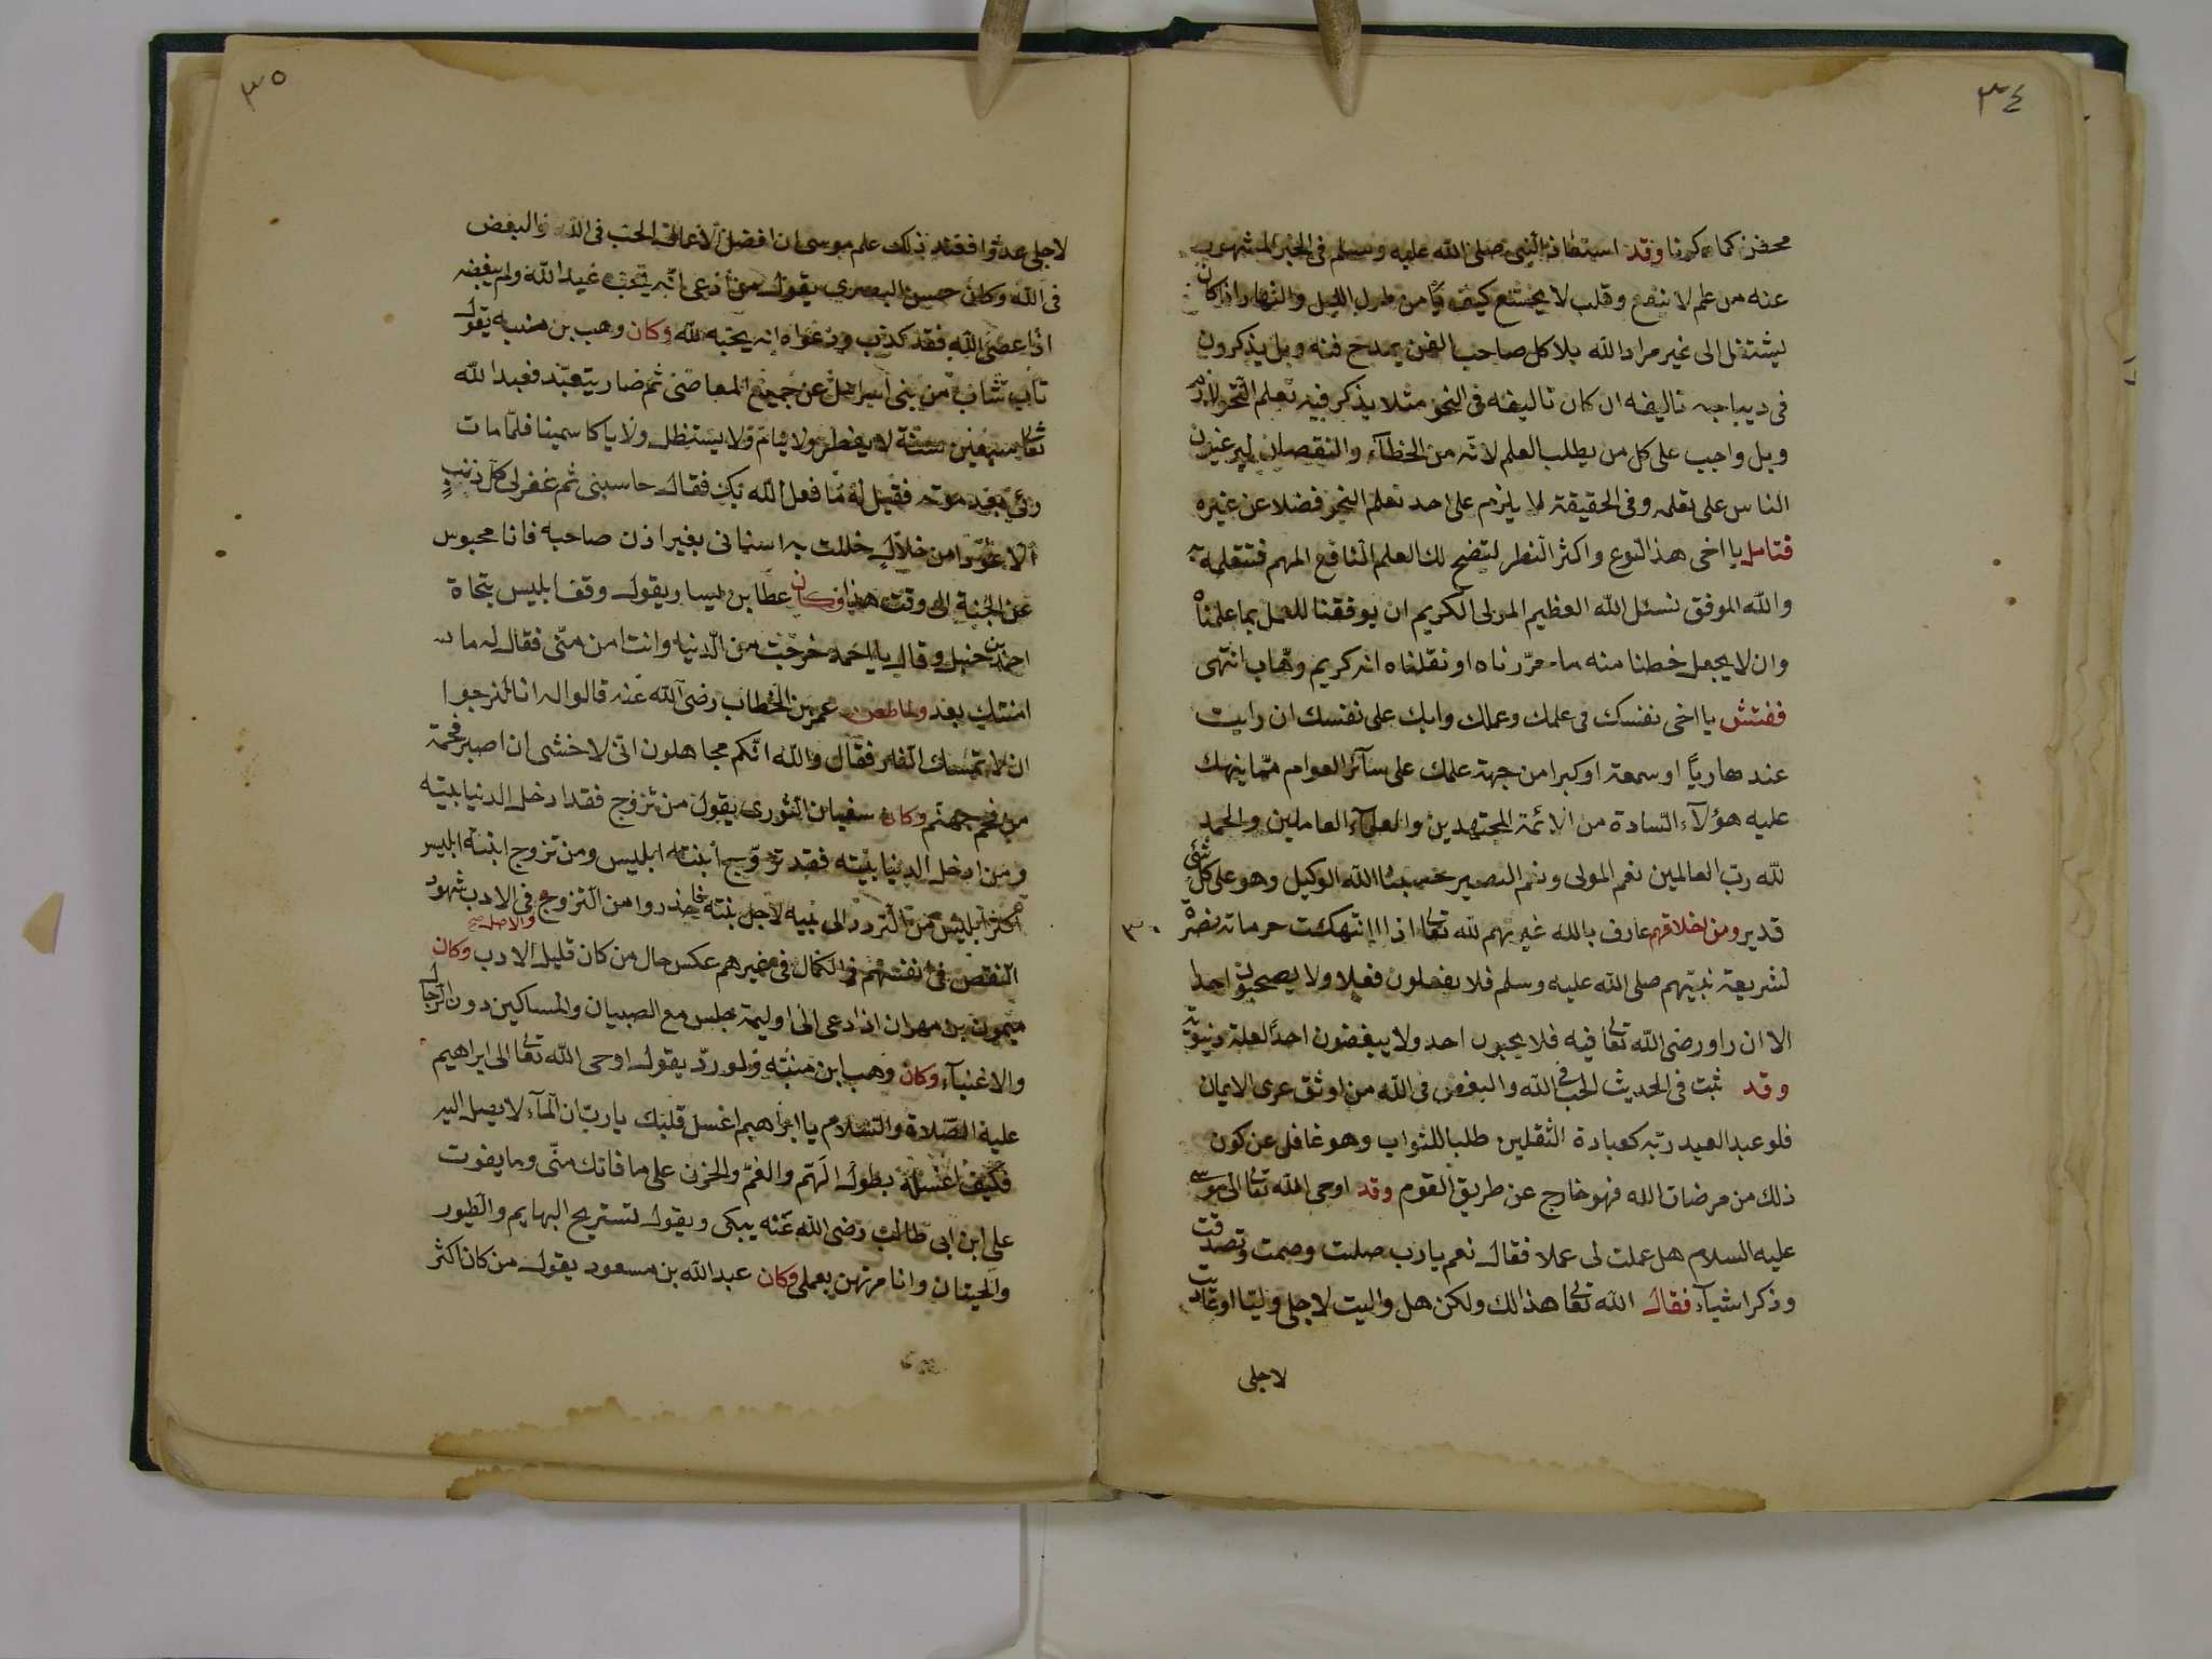 ٣٤
محضن كما ذكرنا وقد استعاذ النبي صلى الله عليه وسلم في الخبر المشهور
عنه من علم لا ينفع وقلب لا يخشع كيف يأمن طول الليل والنهار اذا كان
يشتغل الى غير مراد الله بلا كل صاحب الفن يمدح فنه وبل يذكرون
في ديباجه تاليفه ان كان تاليفه في النحو مثلا يذكر فيه تعلم النحو لازم
وبل واجب على كل من يطلب العلم لانه من الخطآء والنقصان ليرغبون
الناس على تعلمه وفي الحقيقة لا يلزم على احد تعلم النحو فضلا عن غيره
فتامل يا اخى هذا النوع واكثر النظر لتضح لك العلم النافع المهم فتتعلمه
والله الموفق نسئل الله العظيم المولى الكريم ان يوفقنا للعمل بما علمناه
وان لا يجعل خطنا منه ما حرّرناه او نقلناه انه كريم وهّاب انتهى
ففتش يا اخى نفسك في علمك وعملك وابك على نفسك ان رايت
عندها ريآ او سمعة او كبرا من جهة علمك على سآئر العوام ممّا ينهك
عليه هؤلآء السّادة من الائمة المجتهدين والعلمآء العاملين والحمد
لله ربّ العالمين نعم المولى ونعم النصير حسبنا الله الوكيل وهو على كل شئ
قدير ومن اخلاقهم عارف بالله غيرتهم لله تعالى اذا اانتهكت حرماته نصرة
٣٠
لشريعة نبيّهم صلى الله عليه وسلم فلا يفعلون فعلا ولا يصحبون احدا
الا ان راو رضى الله تعالى فيه فلا يحبون احد ولا يبغضون احدًا لعلة دنيوية
وقد ثبت في الحديث الحب في الله والبغض في الله من اوثق عرى الايمان
فلو عبد العبد ربّه كعبادة الثقلين طلبا للثواب وهو غافل عن كون
ذلك من مرضات الله فهو خارج عن طريق القوم وقد اوحى الله تعالى الى موسى
عليه السلام هل عملت لى عملا فقال نعم يارب صليت وصمت وتصدقت
وذكر اشيآء فقال الله تعالى هذا لك ولكن هل واليت لاجلى وليّا او عاديت
لاجلى
٣٥
لاجلى عدوّا فعند ذلك علم موسى ان افضل الاعمال الحب في الله والبغض
في الله وكان حسن البصرى يقول من ادّعى انّه يحبّ عبدا لله ولم يبغضه
اذا عصى الله فقد كذب في دعواه انه يحبه لله وكان وهب بن منبه يقول
تاب شاب من بنى اسرائل عن جميع المعاصى ثم صار يتعبّد فعبد الله
تعالى سبعين سنة لا يفطر ولا ينام ولا يستظل ولا ياكل سمينا فلمّا مات
رئى بعد موته فقيل له ما فعل الله بك فقال حاسبنى ثم غفر لى كل ذنبٍ
الا عودا من خلالٍ خللت به اسنانى بغير اذن صاحبه فانا محبوس
عن الجنة الى وقت هذا وكان عطا بن ليسار يقول وقف ابليس بتجاة
احمد بن حنبل وقال يا احمد خرجت من الدنيا وانت امن منّى فقال له ما
امنتك بعد ولما طعن عمر بن الخطاب رضى الله عنه قالوا له انا لنرجوا
ان لا تمسك النار فقال والله انّكم مجاهلون انّى لاخشى ان اصير فحمة
من فحم جهنّم وكان سفيان الثورى يقول من تزوج فقد ادخل الدنيا بيته
ومن ادخل الدنيا بيته فقد تزوّج ابنته ابليس ومن تزوج ابنته ابليس
اكثر ابليس من التردد الى بيته لاجل بنته فاحذروا من التزوج في الادب شهود
والاصل صح
النقص في انفسهم والكمال في غيرهم عكس حال من كان قليل الادب وكان
ميمون بن مهران اذا دعى الى وليمة جلس مع الصبيان والمساكين دون الرجال
والاغنيآء وكان وهب ابن منبّه ولورد يقول اوحى الله تعالى الى ابراهيم
عليه الصّلاة والسّلام يا ابراهيم اغسل قلبك يا ربّ ان المآء لا يصل اليه
فكيف اغسله بطول الهمّ والغمّ والحزن على ما فاتك منّى وما يفوت
على ابن ابى طالب رضى الله عنه يبكى ويقول لتستريح البهايم والطيور
والحيتان وانا مرتهن بعملى وكان عبد الله بن مسعود يقول من كان اكثر